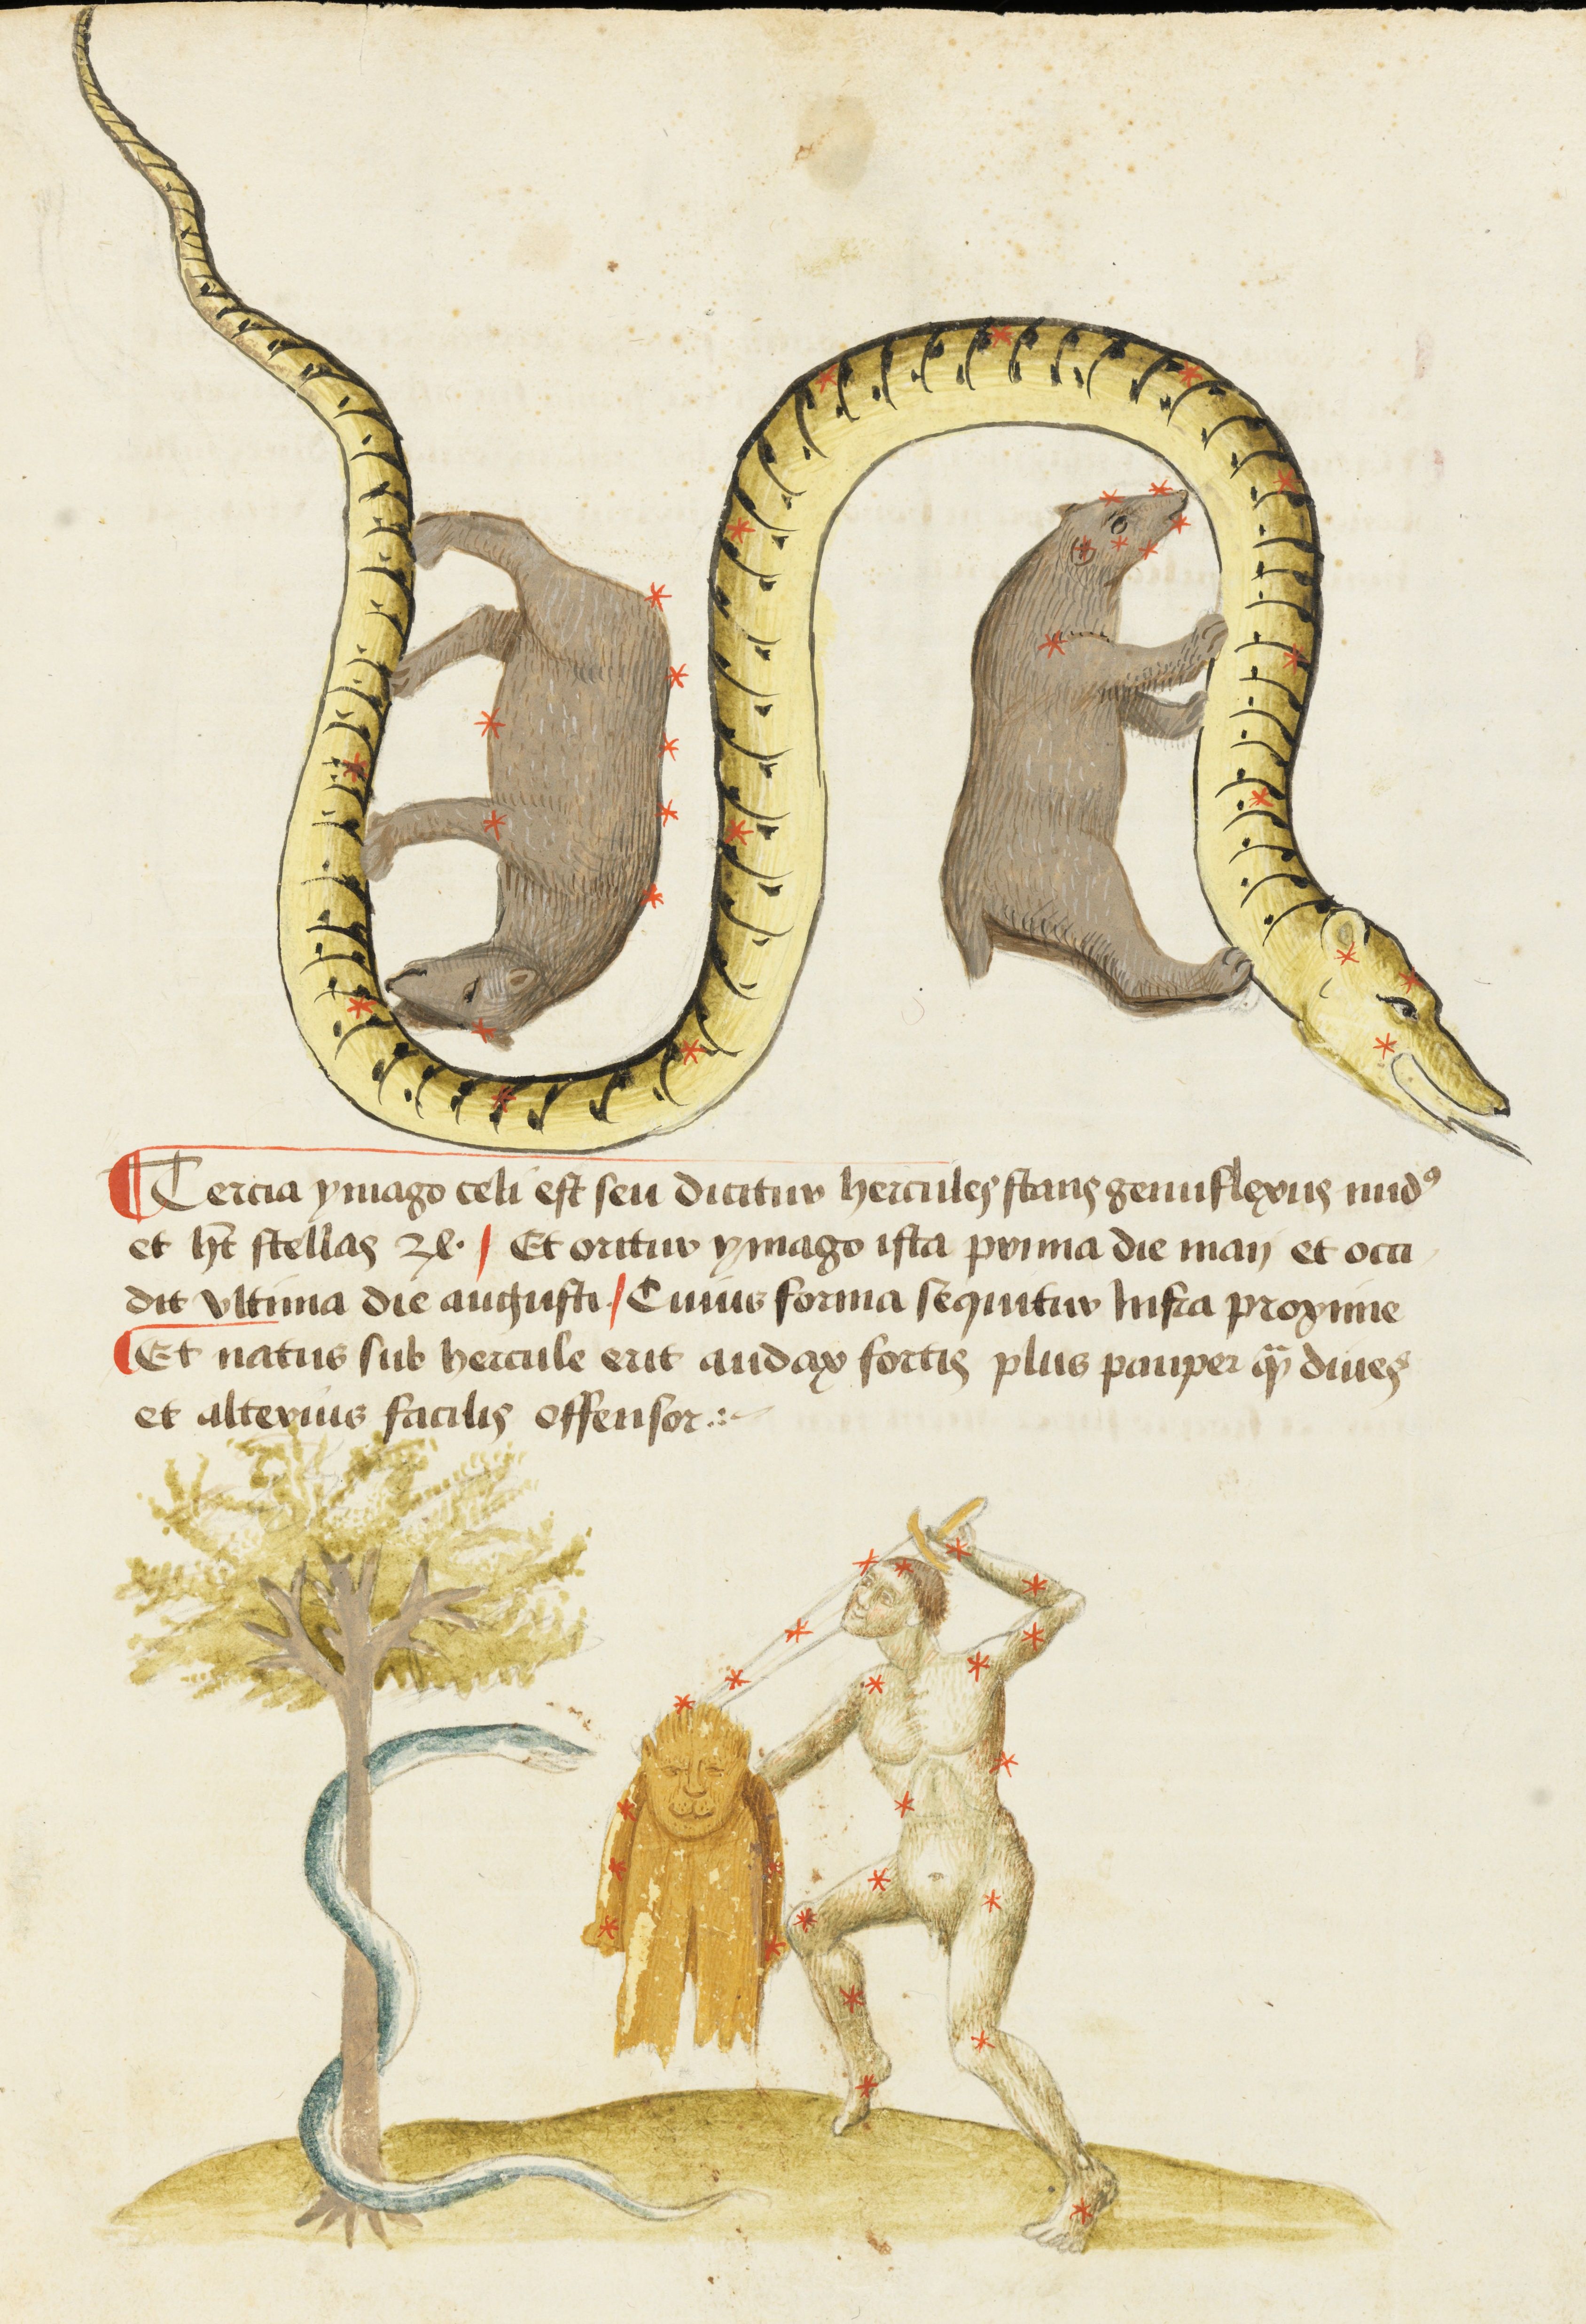 Tercia ymago celi est seu dicitur hercules stans genuflexus nudꝰ
et hr̄t stellas
Et oritur ymago ista prima die maij et occi
dit vltima die augusti. / Cuius forma sequitur infra proxime
Et natus sub hercule erit audax fortis plus pauper qͣ̄ diues
et alterius facilis offensor